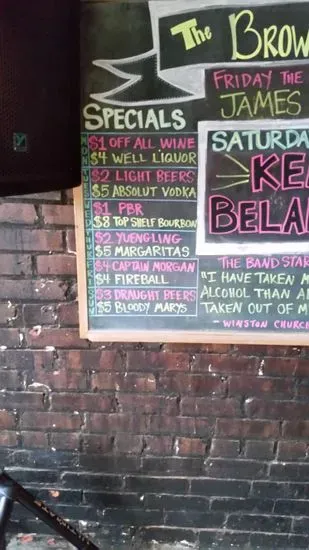 The BROW
FRIDAY THE
JAMES
SPECIALS
MON
$1 OFF ALL WINE
$4 WELL LIQUOR
TUE
$2 LIGHT BEERS
$5 ABSOLUT VODKA
WED
$1 PBR
$8 TOP SHELF BOURBON
THUR
$2 YUENGLING
$5 MARGARITAS
FRI
$4 CAPTAIN MORGAN
$4 FIREBALL
SUN
$3 DRAUGHT BEERS
$5 BLOODY MARYS
SATURDA
KE
BELA
THE BAND STAR
"I HAVE TAKEN M
ALCOHOL THAN A
TAKEN OUT OF M
- WINSTON CHURC